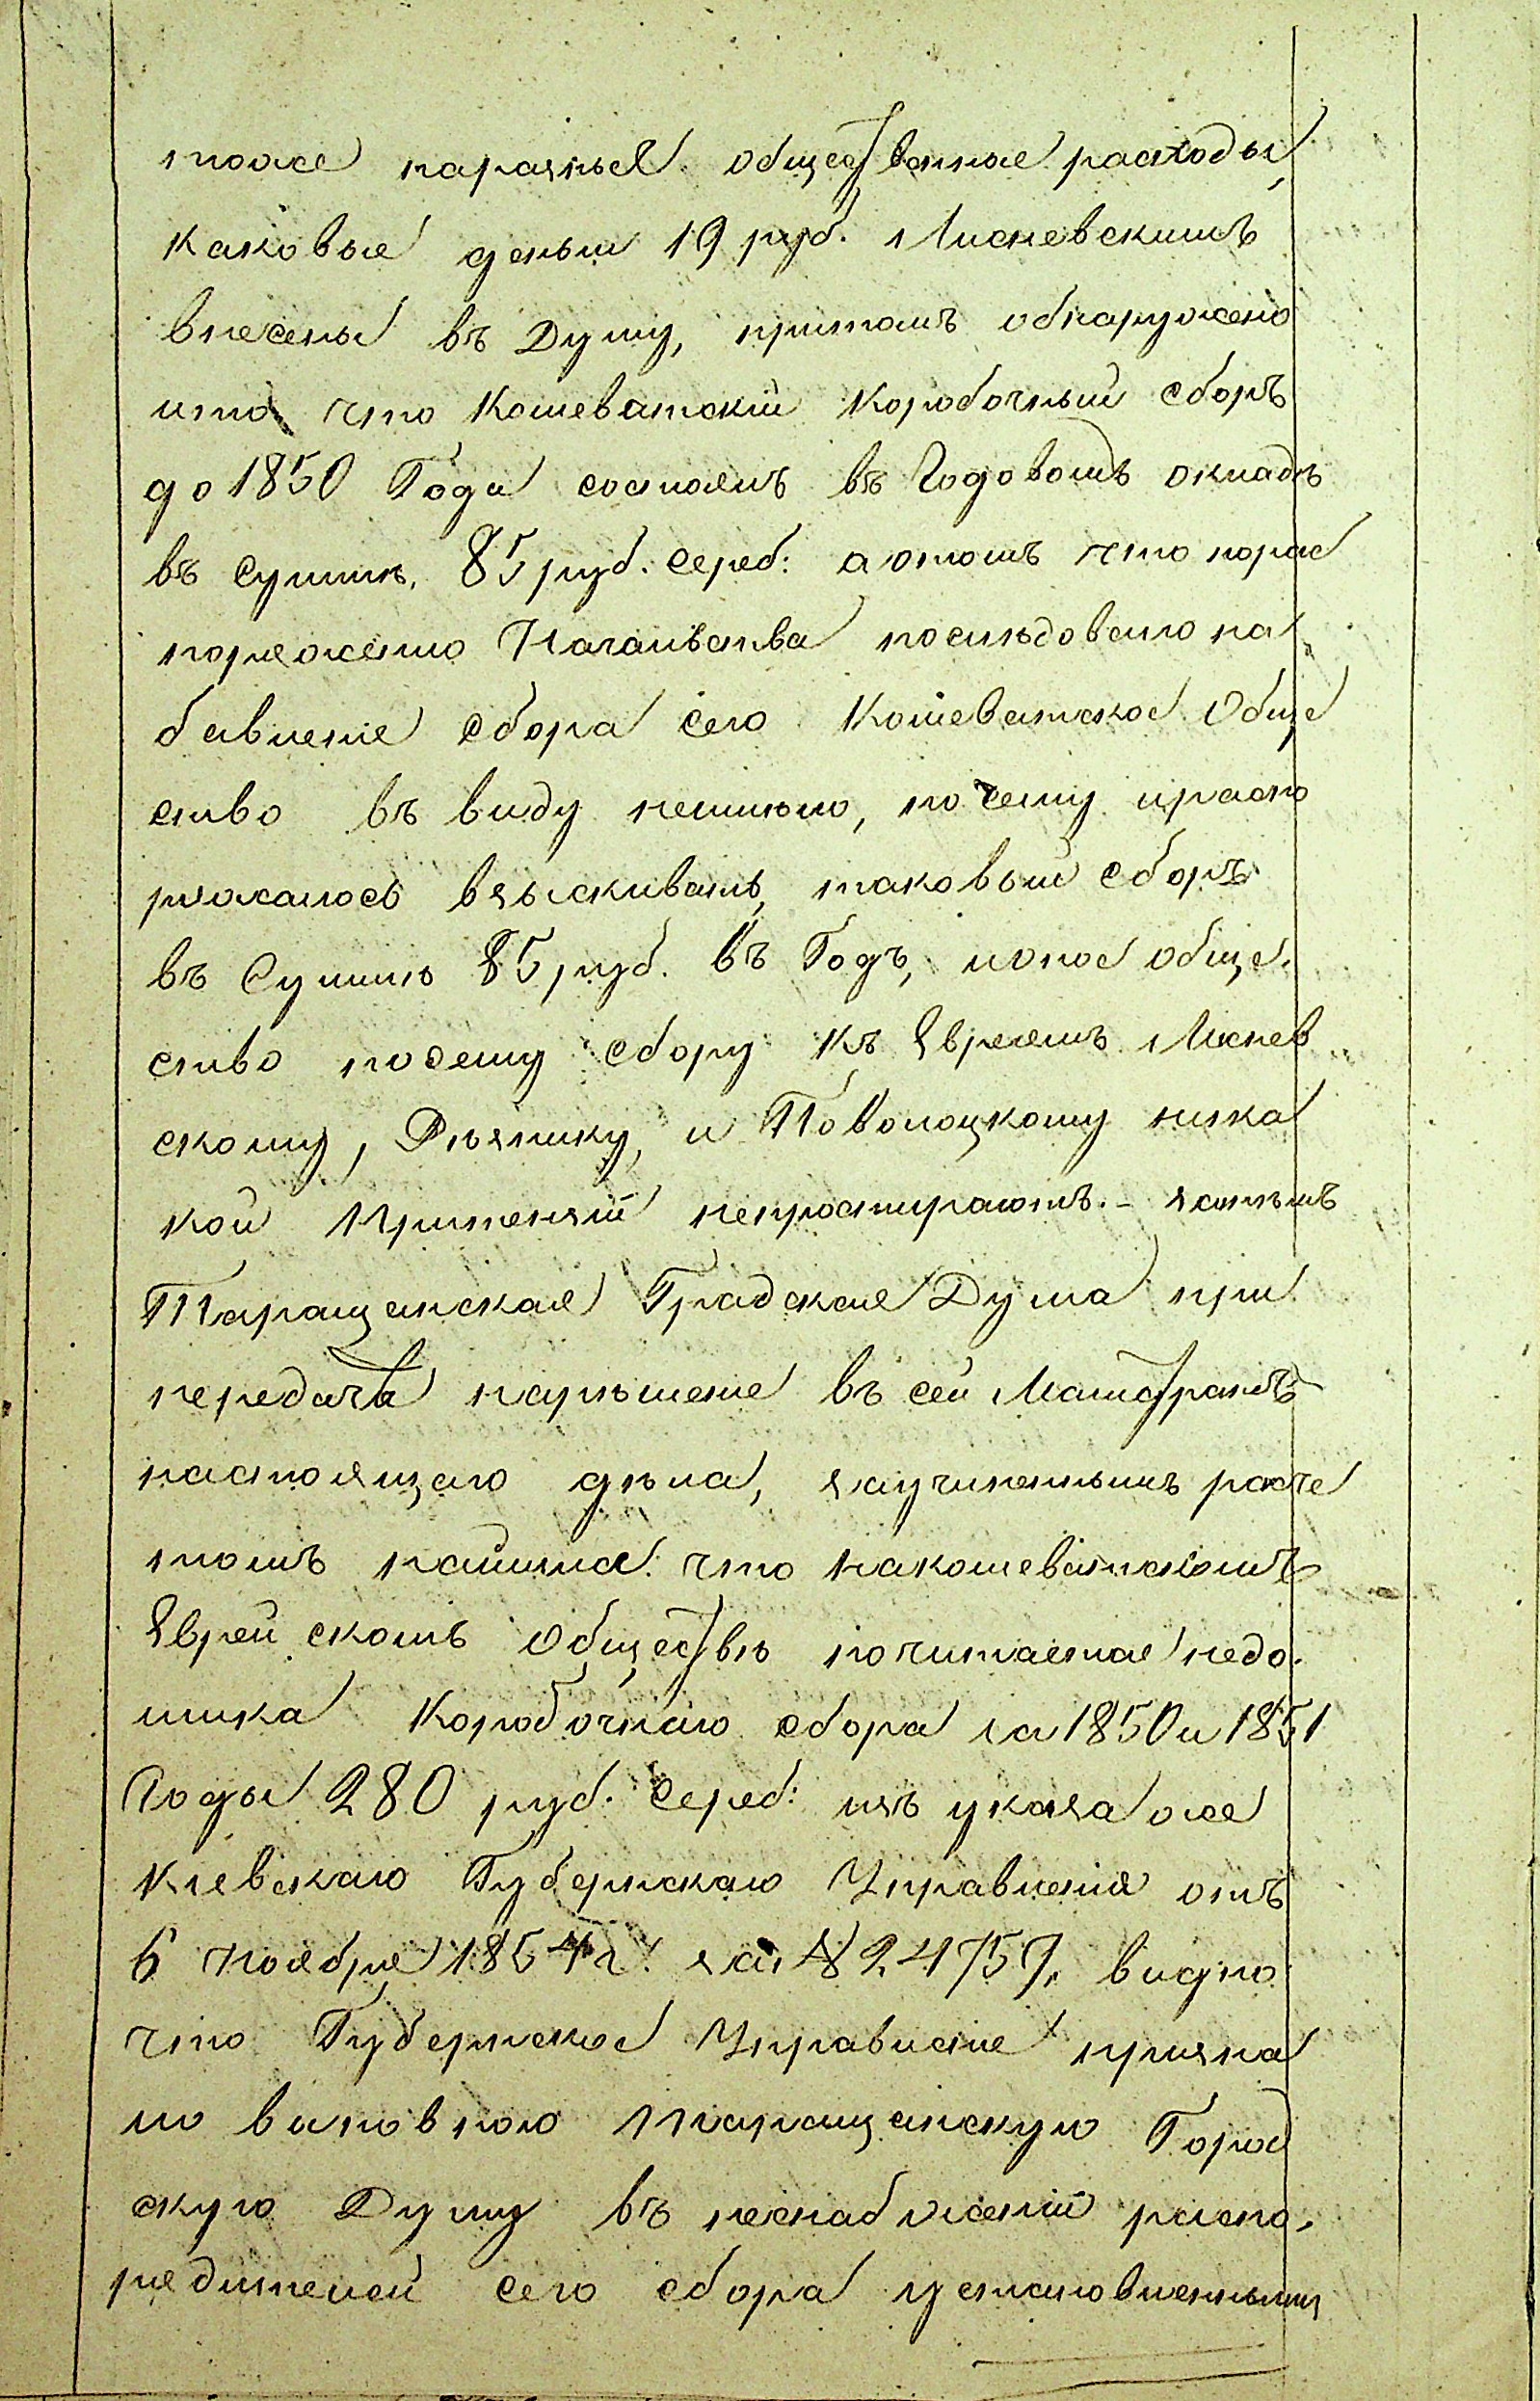 тоже на разныя общественные расходы,
каковые деньги 19 руб. Лисневскимъ
внесены въ Думу, притомъ обнаружено
и то что Кошеватскій коробочный сборъ
до 1850 Года состоялъ въ Годовомъ окладѣ
въ сумме, 85 руб. сереб: а о томъ что пораs
поряжению Начальства последовало на
бавление сбора сего Кошеватское Обще
ство въ виду неимело, по чему и распо
ряжалось взыскивать таковый сборъ
въ Сумме 85 руб. въ Годъ, и оное обще.
ство по сему сбору къ Евреямъ Лиснев
скому, Рѣзнику, и Поволоцкому ника
кой Притензій непростираютъ. - затѣмъ
Таращанская Градская Дума при
передачѣ на рѣшение въ сей Магистратъ
настоящаго дѣла, заучиненнымъ расче
томъ нашла: что на кошеватскомъ
Еврейскомъ Обществѣ почитается недо.
имка Коробочнаго сбора за 1850 и 1851
Годы 280 руб. сереб: изъ указа же
Киевскаго Губернскаго Управления отъ
6 Ноября 1854 г. за № 24757, видно
что Губернское Управление призна
ло виновною Таращанскую Город
скую Думу въ неснабжений распо.
редителей сего сбора установленными